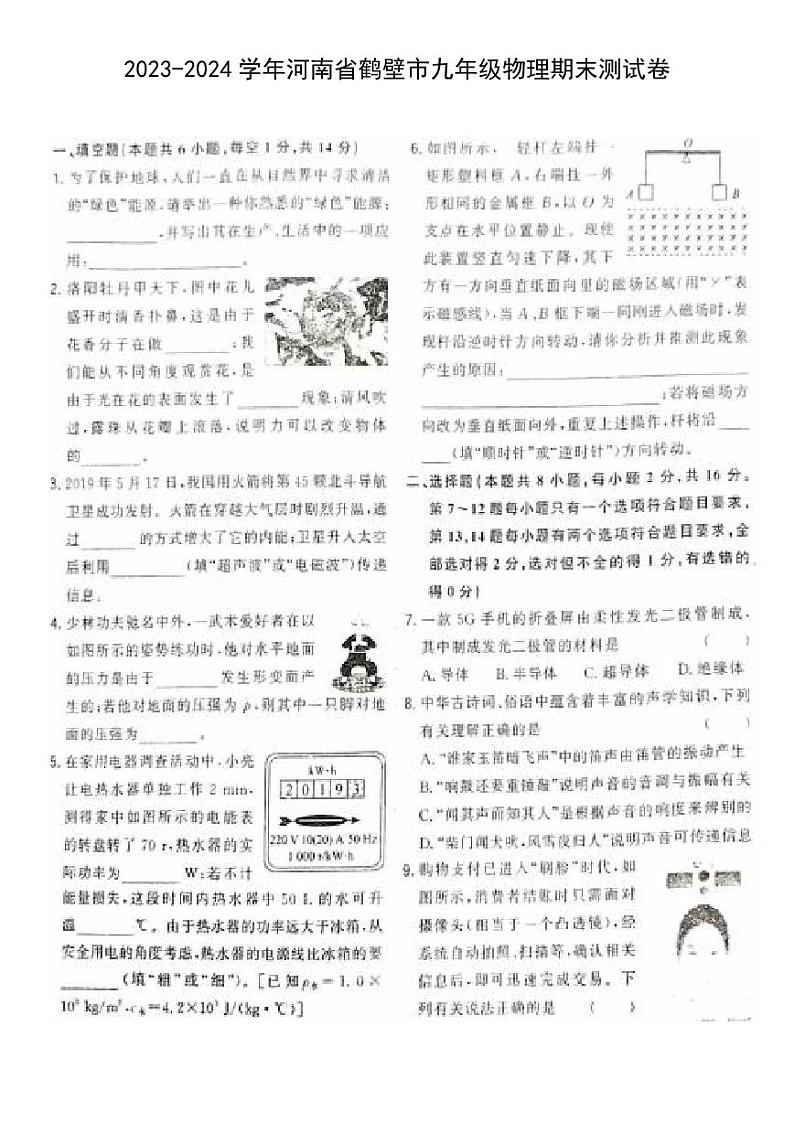 2023-2024 学年河南省鹤壁市九年级物理期末测试卷
一、填空题(本题共 6 小题,每空 1 分,共 14 分)
1. 为了保护地球,人们一直在从自然界中寻求清洁
的“绿色”能源,请举出一种你熟悉的“绿色”能源:
____________,并写出其在生产、生活中的一项应
用:____________________。
2. 洛阳牡丹甲天下,图中花儿
盛开时清香扑鼻,这是由于
花香分子在做________;我
们能从不同角度观赏花,是
由于光在花的表面发生了________现象;清风吹
过,露珠从花瓣上滚落,说明力可以改变物体
的________。
3. 2019 年 5 月 17 日,我国用火箭将第 45 颗北斗导航
卫星成功发射。火箭在穿越大气层时剧烈升温,通
过________的方式增大了它的内能;卫星升入太空
后利用__________(填“超声波”或“电磁波”)传递
信息。
4. 少林功夫驰名中外,一武术爱好者在以
如图所示的姿势练功时,他对水平地面
的压力是由于________发生形变而产
生的;若他对地面的压强为 p,则其中一只脚对地
面的压强为________。
5. 在家用电器调查活动中,小亮
让电热水器单独工作 2 min,
测得家中如图所示的电能表
的转盘转了 70 r,热水器的实
际功率为________W;若不计
能量损失,这段时间内热水器中 50 L 的水可升
温________℃。由于热水器的功率远大于冰箱,从
安全用电的角度考虑,热水器的电源线比冰箱的要
________(填“粗”或“细”)。[已知ρ水=1.0×
10³ kg/m³,c水=4.2×10³ J/(kg·℃)]
kW·h
2 0 1 9 3
220 V 10(20) A 50 Hz
1 000 r/kW·h
6. 如图所示,一轻杆左端挂一
矩形塑料框 A,右端挂一外
形相同的金属框 B,以 O 为
支点在水平位置静止。现使
此装置竖直匀速下降,其下
方有一方向垂直纸面向里的磁场区域(用“×”表
示磁感线),当 A、B 框下端一同刚进入磁场时,发
现杆沿逆时针方向转动,请你分析并推测此现象
产生的原因:______________________________
______________________________;若将磁场方
向改为垂直纸面向外,重复上述操作,杆将沿____
____(填“顺时针”或“逆时针”)方向转动。
O
A
B
二、选择题(本题共 8 小题,每小题 2 分,共 16 分。
第 7~12 题每小题只有一个选项符合题目要求,
第 13、14 题每小题有两个选项符合题目要求,全
部选对得 2 分,选对但不全的得 1 分,有选错的
得 0 分)
7. 一款 5G 手机的折叠屏由柔性发光二极管制成,
其中制成发光二极管的材料是 ( )
A. 导体 B. 半导体 C. 超导体 D. 绝缘体
8. 中华古诗词、俗语中蕴含着丰富的声学知识,下列
有关理解正确的是 ( )
A. “谁家玉笛暗飞声”中的笛声由笛管的振动产生
B. “响鼓还要重锤敲”说明声音的音调与振幅有关
C. “闻其声而知其人”是根据声音的响度来辨别的
D. “柴门闻犬吠,风雪夜归人”说明声音可传递信息
9. 购物支付已进入“刷脸”时代,如
图所示,消费者结账时只需面对
摄像头(相当于一个凸透镜),经
系统自动拍照、扫描等,确认相关
信息后,即可迅速完成交易。下
列有关说法正确的是 ( )